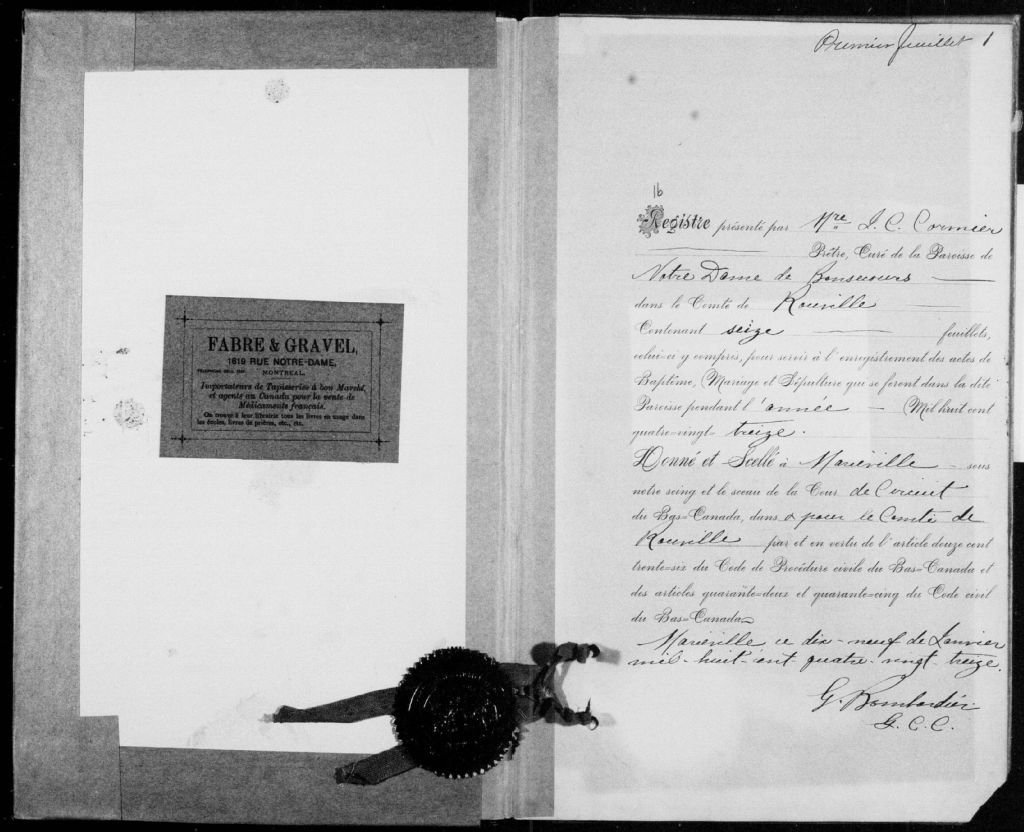 FABRE & GRAVEL,
1619 RUE NOTRE-DAME,
MONTREAL.
Importateurs de Tapisseries à bon Marché,
et agents au Canada pour la vente de
Médicaments français.
On trouve à leur librairie tous les livres en usage dans
les écoles, livres de prières, etc., etc.
Premier feuillet 1
16
Registre présenté par Mre J. C. Cormier
Prêtre, Curé de la Paroisse de
Notre Dame de Bonsecours
dans le Comté de Rouville
Contenant seize feuillets,
celui-ci y compris, pour servir à l'enregistrement des actes de
Baptême, Mariage et Sépulture qui se feront dans la dite
Paroisse pendant l'année Mil huit cent
quatre-vingt- treize.
Donné et Scellé à Marieville sous
notre seing et le sceau de la Cour de Circuit
du Bas-Canada, dans & pour le Comté de
Rouville par et en vertu de l'article douze cent
trente-six du Code de Procédure civile du Bas-Canada et
des articles quarante-deux et quarante-cinq du Code civil
du Bas-Canada
Marieville ce dix-neuf de Janvier
mil-huit-cent quatre-vingt-treize.
G. Bombardier
G. C. C.